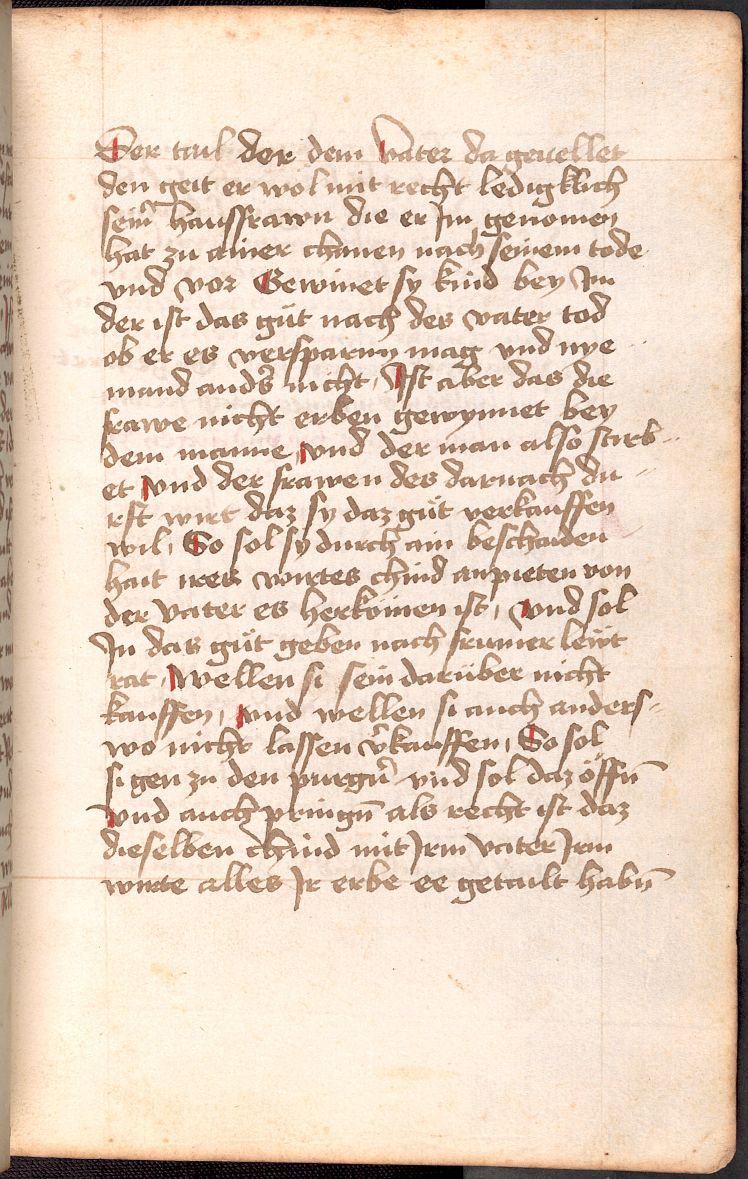 Der tail der dem vater da geuellet
den geit er wol mit recht ledigklich
sein̄ haussfrawn die er Im genomen
hat zu ainer chonen nach seinem tode
vnd vor Gewinet sy kind bey Im
der ist das güt nach des vater tod
ob er es versparnn mag vnd nye
mand anders nicht, Ist aber das die
frawe nicht erben gewynnet bey
dem manne, vnd der man also stirb=
et vnd der frawen des darnach du=
rft wirt daz sy daz güt verkauffen
wil, So sol sy durch ain beschaiden
hait ires wirtes chind anpieten von
der vater es herkömen ist, vnd sol
In das güt geben nach frumer lewt
rat, Wellen si sein darüber nicht
kauffen, vnd wellen si auch anders=
wo nicht lassen v̄kauffen, So sol
si gen zu den purgn̄ vnd sol daz öffn̄
vnd auch pringn̄ als recht ist daz
dieselben chind mit Irm vater Irm
wirte alles Ir erbe ee getailt habn̄